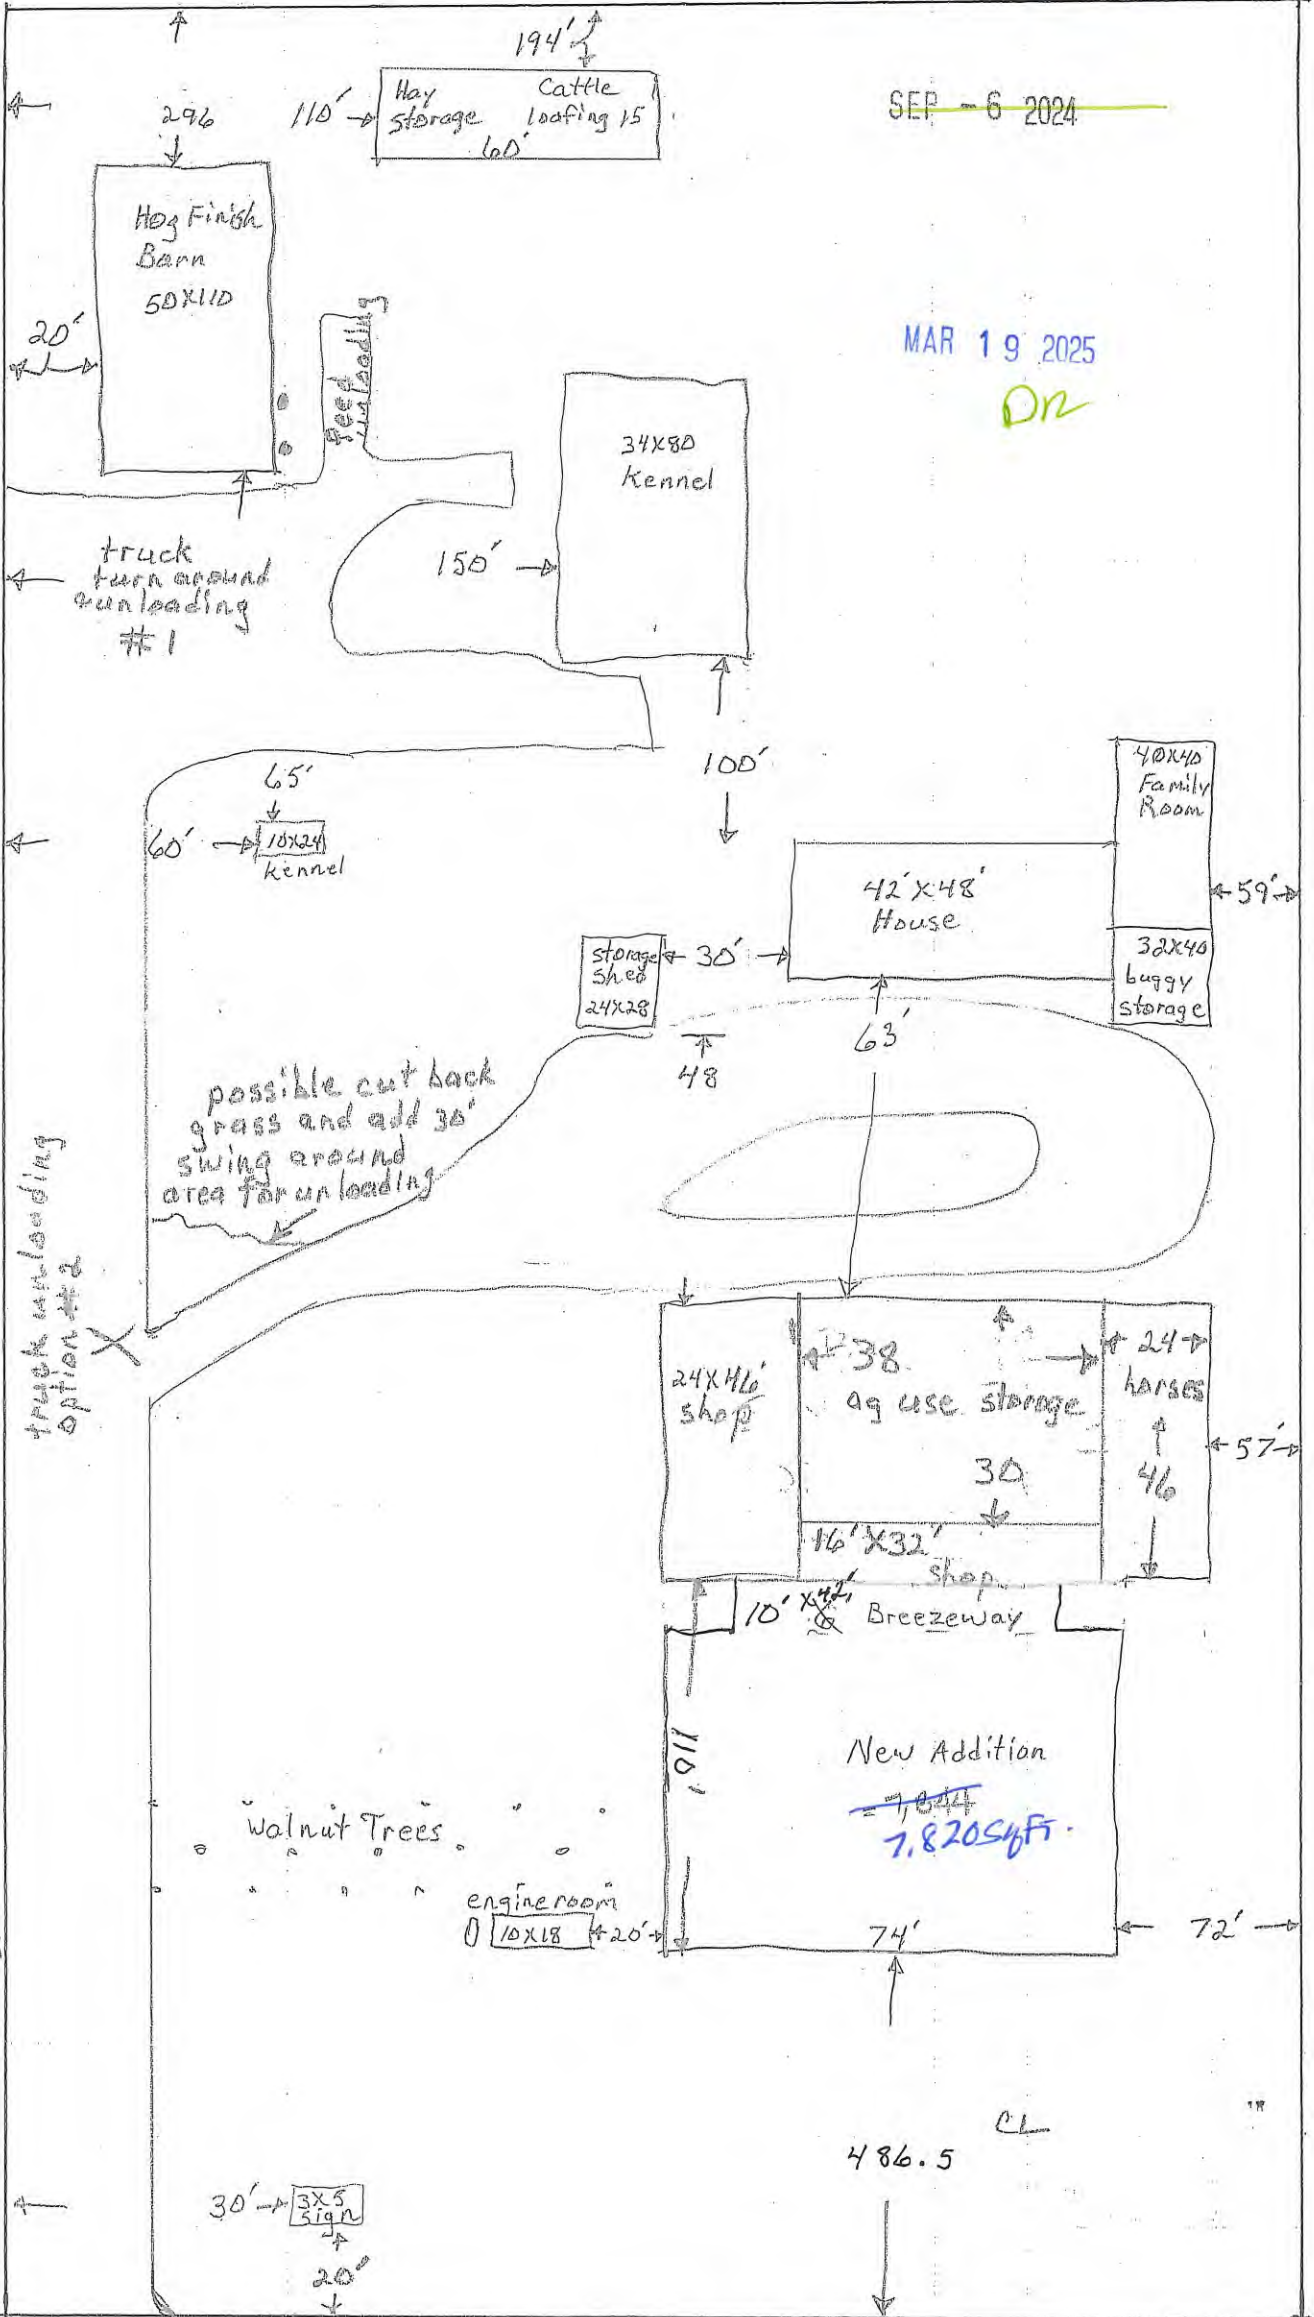 194'
296
110'
Hay Cattle
storage loafing 15
60'
SEP - 6 2024
Hog Finish
Barn
50X110
20'
feed
unloading
MAR 19 2025
DR
34X80
Kennel
150'
truck
turn around
unloading
#1
100'
65'
60'
10X24
kennel
40X40
Family
Room
42'X48'
House
59'
storage
shed
24X28
30'
32X40
buggy
storage
63'
48
possible cut back
grass and add 30'
swing around
area for unloading
truck unloading
option #2
X
24X46'
shop
38
ag use storage
30
24
horses
46
57'
16'X32'
shop
10' X42' Breezeway
110'
New Addition
= 7,844
7,820 SqFt.
Walnut Trees
engine room
10X18
20'
74'
72'
CL
486.5
30'
3X5
sign
20'